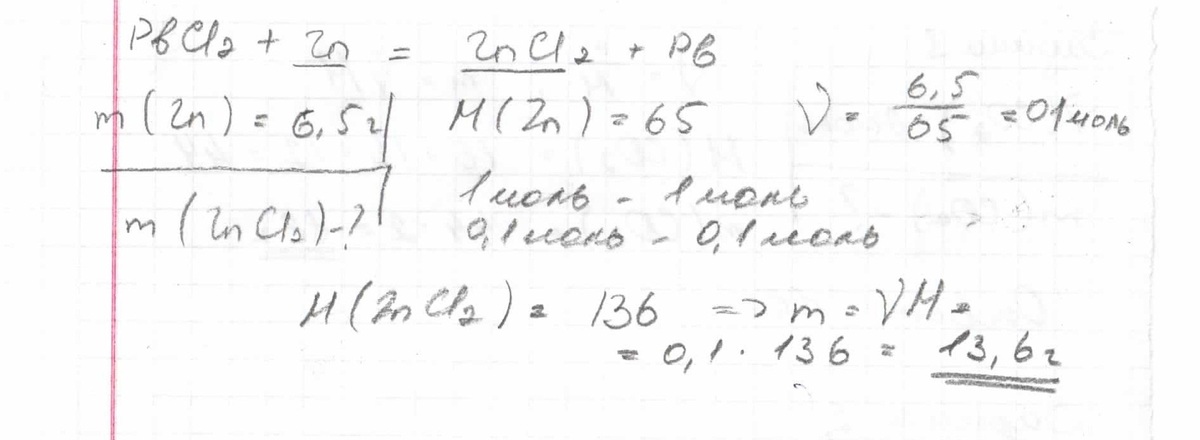 PbCl2 + Zn = ZnCl2 + Pb
m (Zn) = 6,5 г M (Zn) = 65 ν = 6,5 / 65 = 01 моль
1 моль - 1 моль
m (ZnCl2) - ? 0,1 моль - 0,1 моль
M (ZnCl2) = 136 => m = νM =
= 0,1 · 136 = 13,6 г